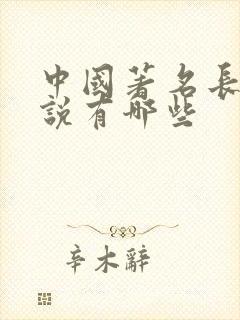 中國著名長
說有哪些
辛木辭